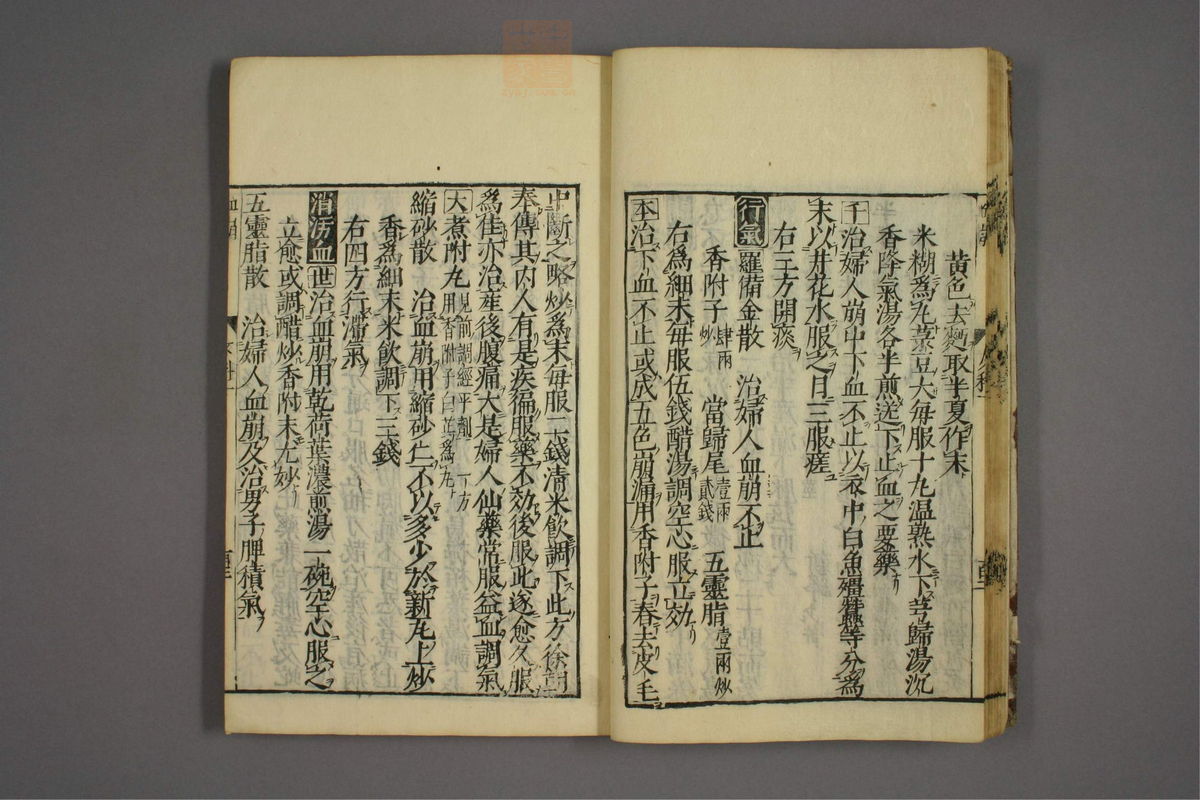 黄色去麪取半夏作末
米糊爲丸菉豆大每服十丸温熟水下芎歸湯沉
香降氣湯各半煎送下止血之要藥
千治婦人崩中下血不止以衣中白魚殭蠶等分爲
末以井花水服之日三服瘥
右三方開痰
行氣 羅備金散 治婦人血崩不止
香附子肆兩炒 當歸尾壹兩貳錢 五靈脂壹兩炒
右爲細末每服伍錢醋湯調空心服立効
本治下血不止或成五色崩漏用香附子舂去皮毛
中斷之略炒爲末每服二錢清米飲調下此方徐朝
奉傳其内人有是疾徧服藥不効後服此遂愈久服
爲佳亦治産後腹痛大是婦人仙藥常服益血調氣
大煮附丸見前調經平劑一方用香附子白芷爲丸
縮砂散 治血崩用縮砂仁不以多少於新瓦上炒
香爲細末米飲調下三錢
右四方行滯氣
消污血 世治血崩用乾荷葉濃煎湯一碗空心服之
立愈或調醋炒香附末尤妙
五靈脂散 治婦人血崩及治男子脾積氣